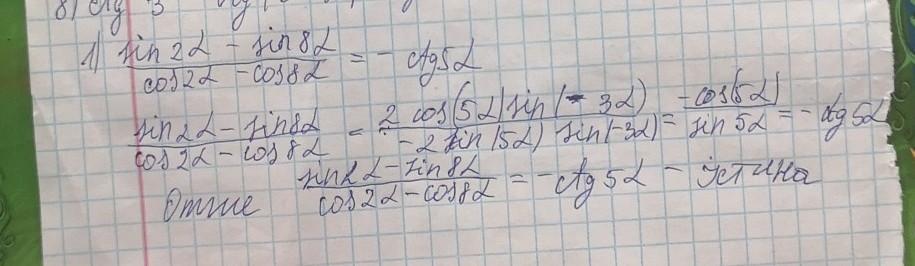 1) (sin2α - sin8α)/(cos2α - cos8α) = - ctg5α
(sin2α - sin8α)/(cos2α - cos8α) = (2 cos(5α) sin(-3α))/(-2 sin(5α) sin(-3α)) = (-cos(5α))/(sin5α) = - ctg5α
Отже (sin2α - sin8α)/(cos2α - cos8α) = - ctg5α - істина